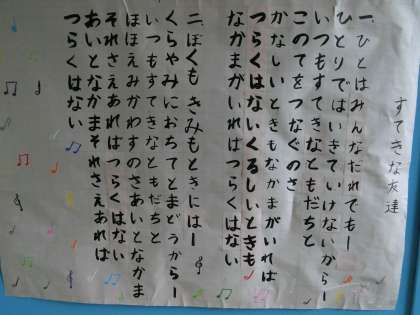 すてきな友達
一、ひとはみんなだれでもー
ひとりではいきていけないからー
いつもすてきなともだちと
このてをつなぐのさ
かなしいときもなかまがいれば
つらくはないくるしいときも
なかまがいればつらくはない
二、ぼくもきみもときにはー
くらやみにおちてとまどうからー
いつもすてきなともだちと
ほほえみかわすのさあいとなかま
それさえあればつらくはない
あいとなかまそれさえあれば
つらくはない